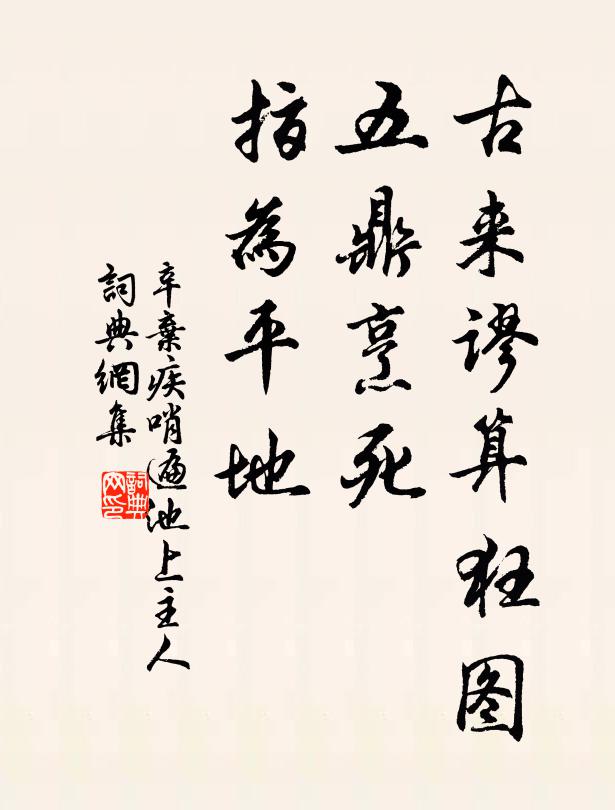 古来谬算狂图
五鼎烹死
指為平地
辛棄疾哨遍池上主人
詞典網集
詞典网印